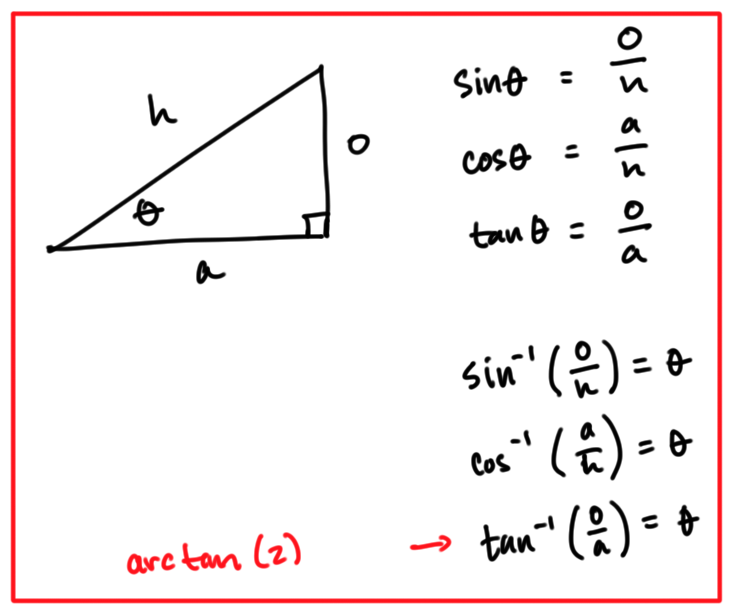 h
o
θ
a
sinθ = o/h
cosθ = a/h
tanθ = o/a
sin⁻¹(o/h) = θ
cos⁻¹(a/h) = θ
arctan(2) → tan⁻¹(o/a) = θ